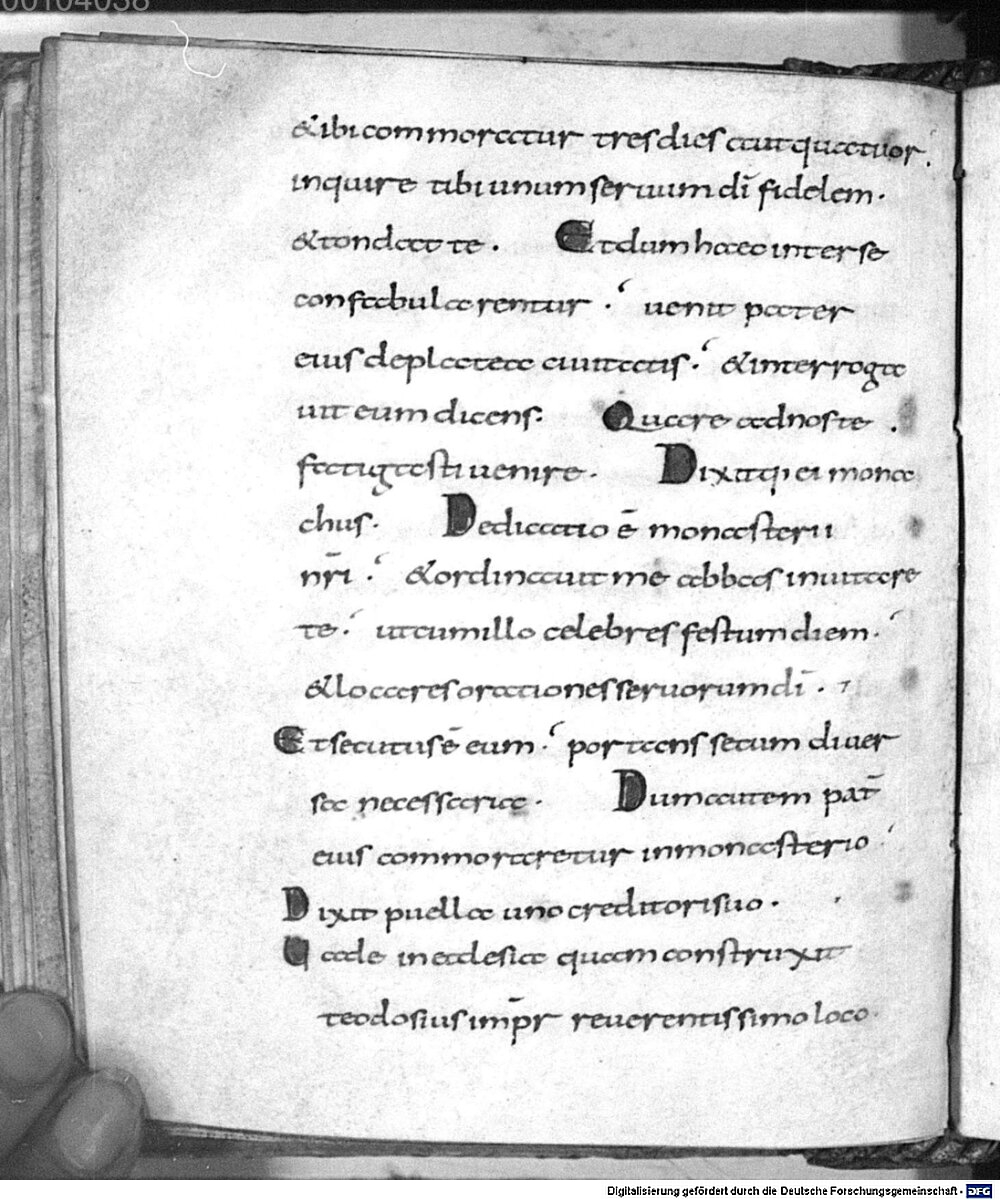 00104038
& ibi commoratur tres dies aut quattuor.
inquire tibi unum seruum dī fidelem.
& tondat te. Et dum haec inter se
confabularentur. uenit pater
eius deplatea ciuitatis. & interroga
uit eum dicens. Quare ad nos te
fatigasti uenire. Dixitq; ei mona
chus. Dedicatio ē monasterii
nr̄i. & ordinauit me abbas inuitare
te. ut cum illo celebres festum diem.
& lo careris orationes seruorum dī.
Et secutus ē eum. portans secum diuer
sa necessaria. Dum autem pat̄
eius commoraretur in monasterio
Dixit puella uno creditori suo.
Uade in ecclesia quam construxit
teodosius imp̄r reuerentissimo loco.
Digitalisierung gefördert durch die Deutsche Forschungsgemeinschaft - DFG